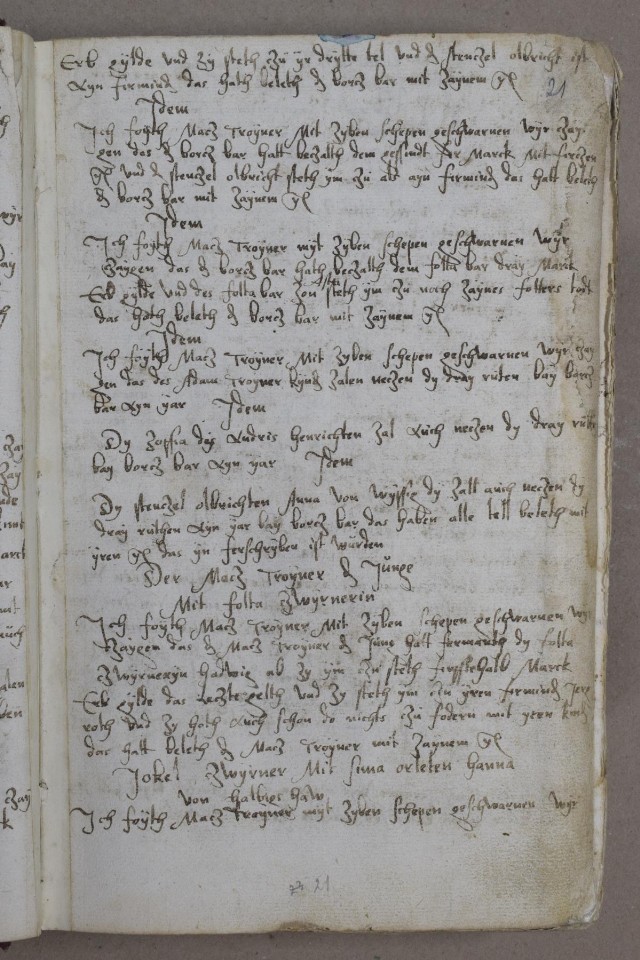 Erb gylde vnd zy steth czu yr drytte tel vnd d stenczel olbricht ist
ayn firmind das hath beleth d borcz bar mit zaynem gl
21
Idem
Ich foyth Macz Troyner Mit zyben schepen geschwarnen wyr czay
gen das d borcz bar hatt beczalth dem gessindt fir Marck Mit firczen
gl vnd d stenczel olbricht steth ym zu als ayn firmind das hatt beleth
d borcz bar mit zaynem gl
Idem
Ich foyth Macz Troyner myt zyben schepen geschwarnen wyr
zaygen das d borcz bar hath beczalth dem folta bar dray Marck
Erb gylde vnd des folta bar zon steth ym zu noch zaynes fotters todt
das hath beleth d borcz bar mit zaynem gl
Idem
Ich foyth Macz Troyner Mit zyben schepen geschwarnen wyr czay
gen das des Adam Troyner kynd zalen neczen dy dray ruten bay borcz
bar ayn yar Idem
Dy zoffia des Andris henrichten zal auch neczen dy dray ruten
bay borcz bar ayn yar Idem
Dy stenczel olbrichten Anna von wyssie dy zall auch neczen dy
dray ruthen ayn yar bay borcz bar das haben alle tell beleth mit
yren gl das yn ferschryben ist wurden
Der Macz Troyner d Junge
Mit folta zwyrnerin
Ich foyth Macz Troyner Mit zyben schepen geschwarnen wyr
zaygen das d Macz Troyner d June hatt dy folta
zwyrneryn hadwie ab zy ym czu steth Marck
Erb gylde das leczte gelth vnd zy steth ym czu yren firmind Jerg
roth vnd zy hath auch schon do nichts czu fodern mit yren kind
das hatt beleth d Macz Troyner mit zaynem gl
Jokel Zwyrner Mit sima orleten hanna
von haw
Ich foyth Macz Troyner myt zyben schepen geschwarnen wyr
21